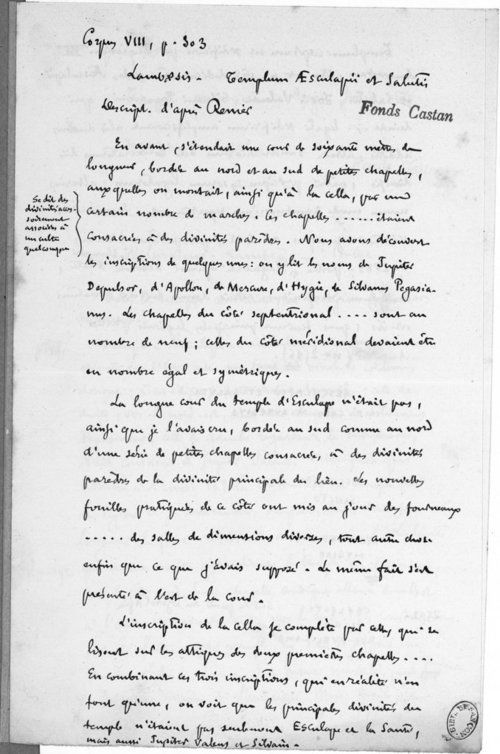 Corpus VIII, p. 303
Lambæsis - Templum Æsculapii et Salutis
Descript. d'après Renier
Fonds Castan
En avant, s'étendait une cour de soixante mètres de
longueur, bordée au nord et au sud de petites chapelles,
auxquelles on montait, ainsi qu'à la cella, par un
certain nombre de marches. Ces chapelles ...... étaient
consacrées à des divinités parèdres. Nous avons découvert
les inscriptions de quelques unes: on y lit les noms de Jupiter
Depulsor, d'Apollon, de Mercure, d'Hygie, de Silvanus Pegasia-
nus. Les chapelles du côté septentrional .... sont au
nombre de neuf; celles du côté méridional devaient être
en nombre égal et symétriques.
Se dit des
divinités
associées à
un culte
quelconque
La longue cour du temple d'Esculape n'était pas,
ainsi que je l'avais cru, bordée au sud comme au nord
d'une série de petites chapelles consacrées, à des divinités
parèdres de la divinité principale du lieu. Les nouvelles
fouilles pratiquées de ce côté ont mis au jour des fourneaux
..... des salles de dimensions diverses, tout autre chose
enfin que ce que j'avais supposé. Le même fait s'est
présenté à l'est de la cour.
L'inscription de la cella se complète par celles qui se
lisent sur les attiques des deux premières chapelles ....
En combinant ces trois inscriptions, qui en réalité n'en
font qu'une, on voit que les principales divinités du
temple n'étaient pas seulement Esculape et la Santé,
mais aussi Jupiter Valens et Silvain.